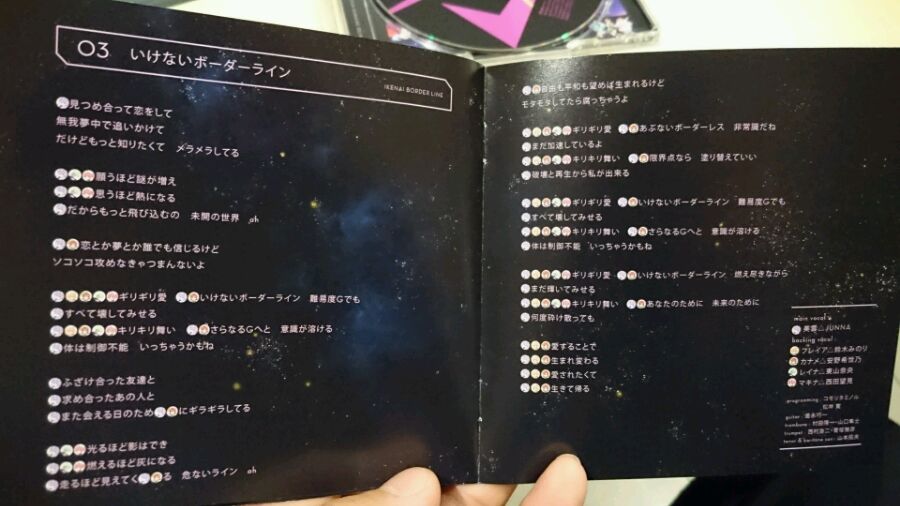 03 いけないボーダーライン
IKENAI BORDER LINE
見つめ合って恋をして
無我夢中で追いかけて
だけどもっと知りたくて メラメラしてる
願うほど謎が増え
思うほど熱になる
だからもっと飛び込むの 未開の世界 oh
恋とか夢とか誰でも信じるけど
ソコソコ攻めなきゃつまんないよ
ギリギリ愛 いけないボーダーライン 難易度Gでも
すべて壊してみせる
キリキリ舞い さらなるGへと 意識が溶ける
体は制御不能 いっちゃうかもね
ふざけ合った友達と
求め合ったあの人と
また会える日のため にギラギラしてる
光るほど影はでき
燃えるほど灰になる
走るほど見えてく る 危ないライン oh
自由も平和も望めば生まれるけど
モタモタしてたら腐っちゃうよ
ギリギリ愛 あぶないボーダーレス 非常識だね
まだ加速しているよ
キリキリ舞い 限界点なら 塗り替えていい
破壊と再生から私が出来る
ギリギリ愛 いけないボーダーライン 難易度Gでも
すべて壊してみせる
キリキリ舞い さらなるGへと 意識が溶ける
体は制御不能 いっちゃうかもね
ギリギリ愛 いけないボーダーライン 燃え尽きながら
まだ輝いてみせる
キリキリ舞い あなたのために 未来のために
何度砕け散っても
愛することで
生まれ変わる
愛されたくて
生きて帰る
main vocal
美雲△JUNNA
backing vocal
フレイア△鈴木みのり
カナメ△安野希世乃
レイナ△東山奈央
マキナ△西田望見
programming：コモリタミノル
guitar：
trombone：村田陽一・山口隼士
trumpet：西村浩二・菅坡雅彦
tenor & baritone sax：山本拓夫